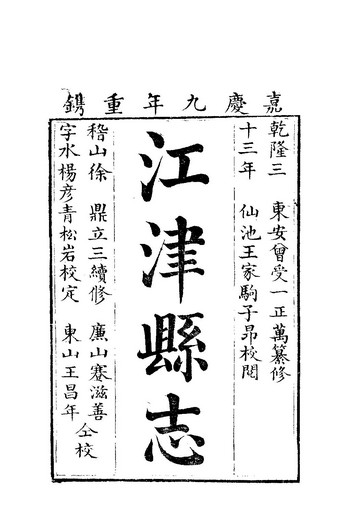 嘉慶九年重鐫
乾隆三十三年
東安曾受一正萬纂修
仙池王家駒子昂校閱
江津縣志
稽山徐鼎立三續修
字水楊彦青松岩校定
廉山蹇滋善
東山王昌年
仝校